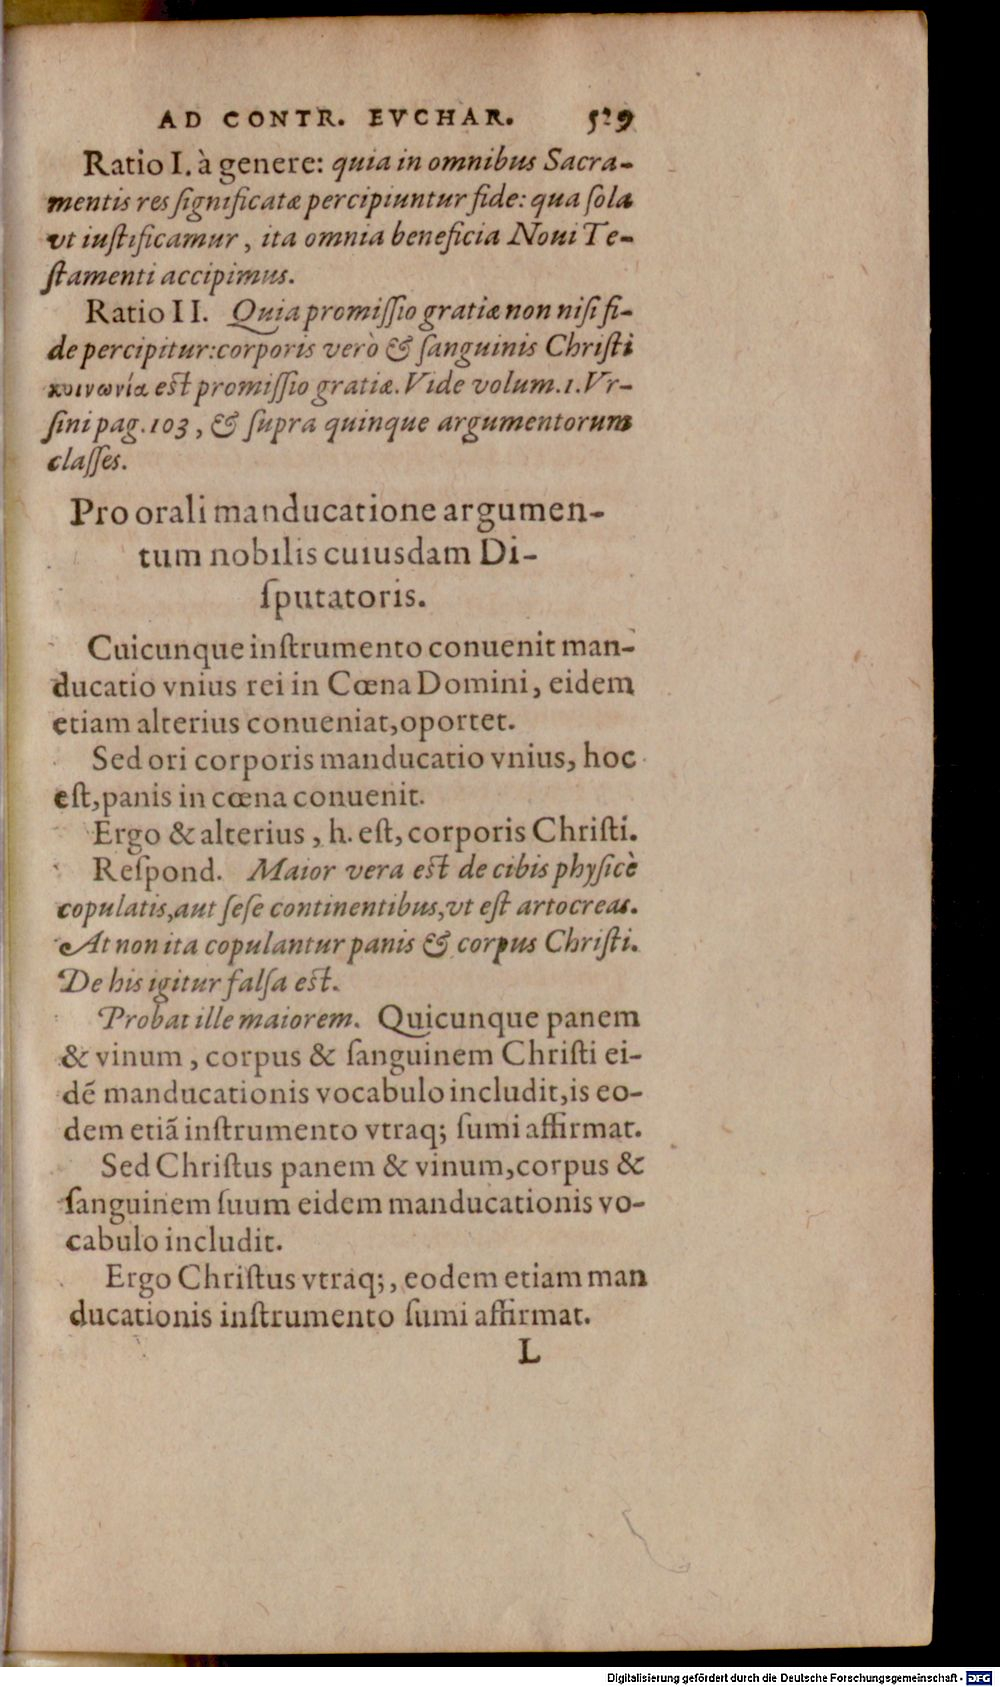 AD CONTR. EVCHAR. 529
Ratio I. à genere: quia in omnibus Sacra-
mentis res ſignificatæ percipiuntur fide: qua ſola
vt iuſtificamur, ita omnia beneficia Noui Te-
ſtamenti accipimus.
Ratio II. Quia promiſſio gratiæ non niſi fi-
de percipitur: corporis verò & ſanguinis Chriſti
κοινωνία eſt promiſſio gratiæ. Vide volum. 1. Vr-
ſini pag. 103, & ſupra quinque argumentorum
claſſes.
Pro orali manducatione argumen-
tum nobilis cuiusdam Di-
ſputatoris.
Cuicunque inſtrumento conuenit man-
ducatio vnius rei in Cœna Domini, eidem
etiam alterius conueniat, oportet.
Sed ori corporis manducatio vnius, hoc
eſt, panis in cœna conuenit.
Ergo & alterius, h. eſt, corporis Chriſti.
Reſpond. Maior vera eſt de cibis phyſicè
copulatis, aut ſeſe continentibus, vt eſt artocreas.
At non ita copulantur panis & corpus Chriſti.
De his igitur falſa eſt.
Probat ille maiorem. Quicunque panem
& vinum, corpus & ſanguinem Chriſti ei-
dē manducationis vocabulo includit, is eo-
dem etiā inſtrumento vtraq; ſumi affirmat.
Sed Chriſtus panem & vinum, corpus &
ſanguinem ſuum eidem manducationis vo-
cabulo includit.
Ergo Chriſtus vtraq;, eodem etiam man
ducationis inſtrumento ſumi affirmat.
L
Digitalisierung gefördert durch die Deutsche Forschungsgemeinschaft - DFG